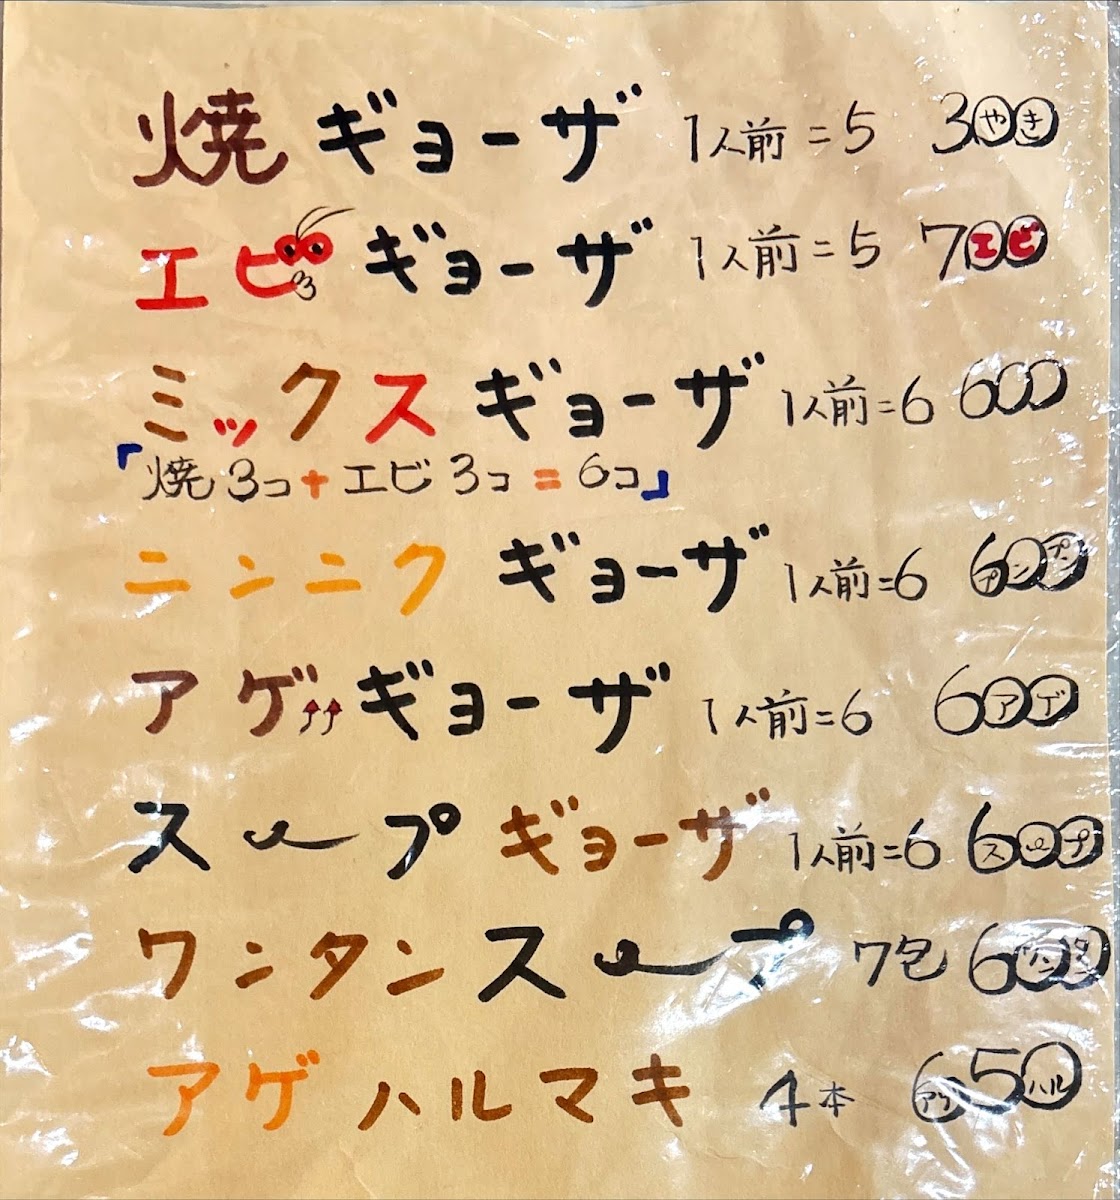 焼ギョーザ 1人前=5 300 やき
エビギョーザ 1人前=5 700 エビ
ミックスギョーザ 1人前=6 600
「焼3コ+エビ3コ=6コ」
ニンニクギョーザ 1人前=6 600
アゲギョーザ 1人前=6 600 アゲ
スープギョーザ 1人前=6 600 スープ
ワンタンスープ 7包 600 ワンタン
アゲハルマキ 4本 650 アゲ ハル